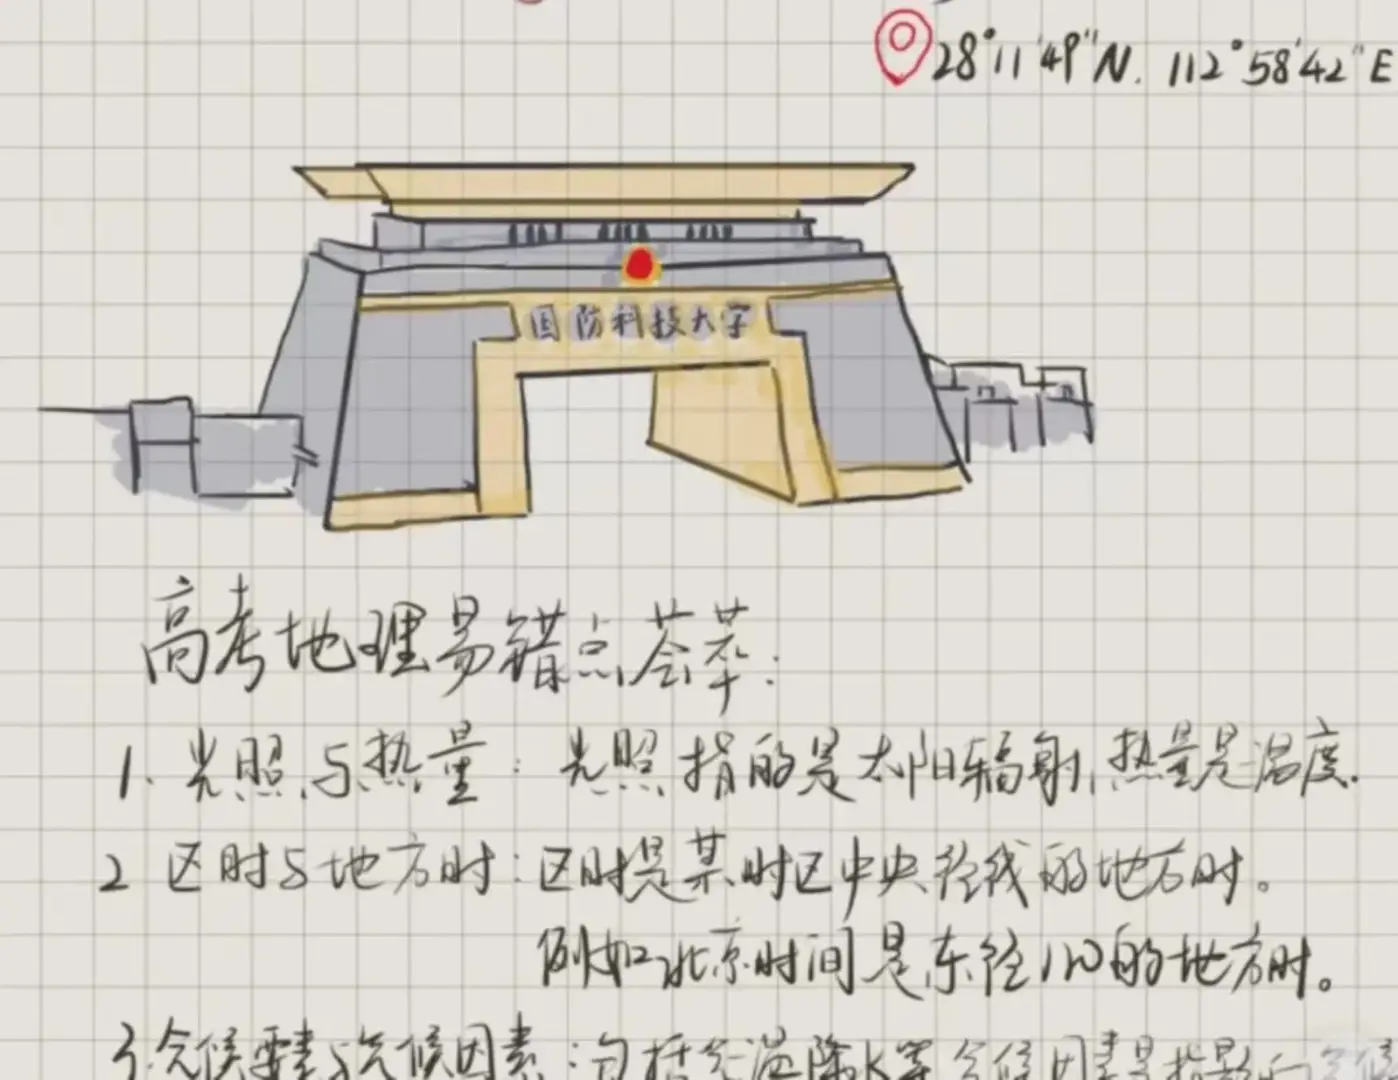 28°11′49″N. 112°58′42″E
国防科技大学
高考地理易错点荟萃:
1. 光照与热量: 光照指的是太阳辐射,热量是温度.
2 区时与地方时:区时是某时区中央经线的地方时。
例如北京时间是东经120的地方时。
3.气候要素与气候因素:包括气温降水等 气候因素是指影响气候